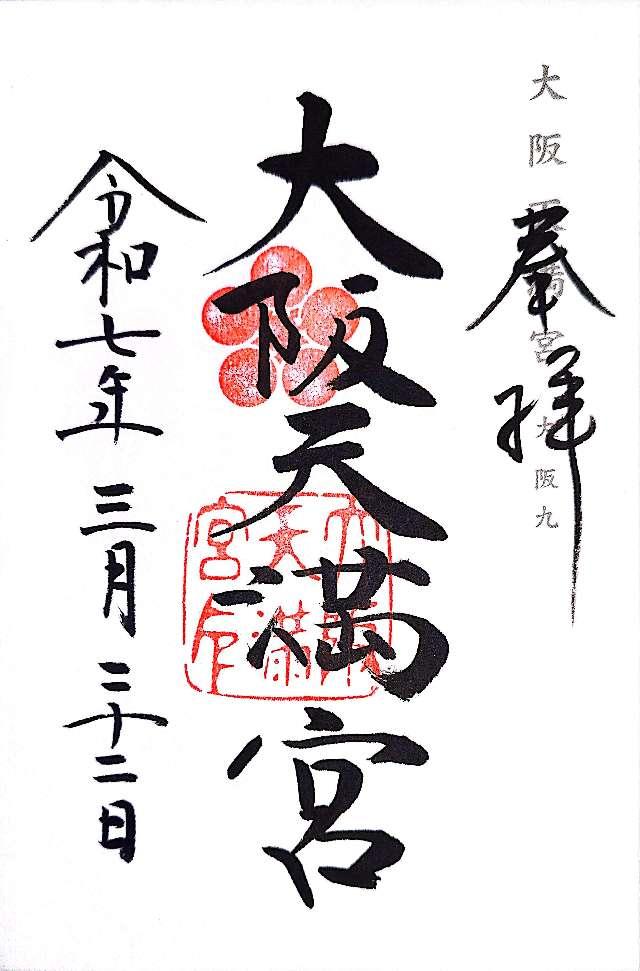 大阪天満宮 大阪九
奉拝
大阪天満宮
大阪天満宮印
令和七年三月二十二日